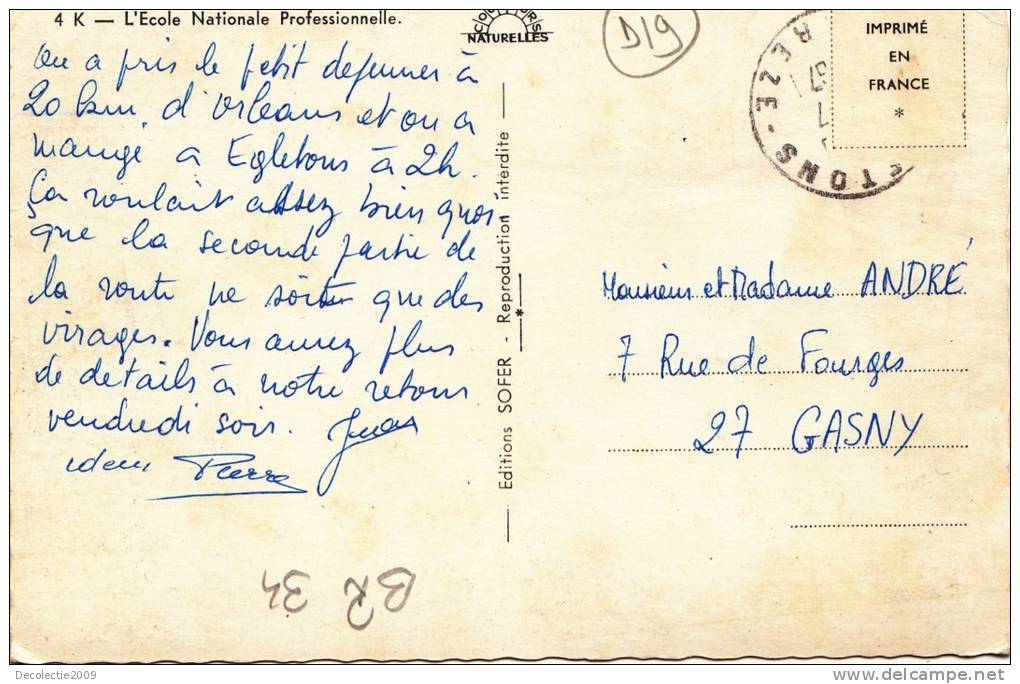 4 K — L'Ecole Nationale Professionnelle.
COULEURS
NATURELLES
D19
IMPRIMÉ
EN
FRANCE
*
TONS - REZE
On a pris le petit dejeuner à
20 km d'Orleans et on a
mangé a Egletons à 2h.
Ça roulait assez bien quoi
que la seconde partie de
la route ne soit que des
virages. Vous aurez plus
de details à notre retour
vendredi soir.
idem Pierre
Editions SOFER - Reproduction interdite
*
Monsieur et Madame ANDRÉ
7 Rue de Fourges
27 GASNY
BR 34
Decolectie2009
www.delcampe.net